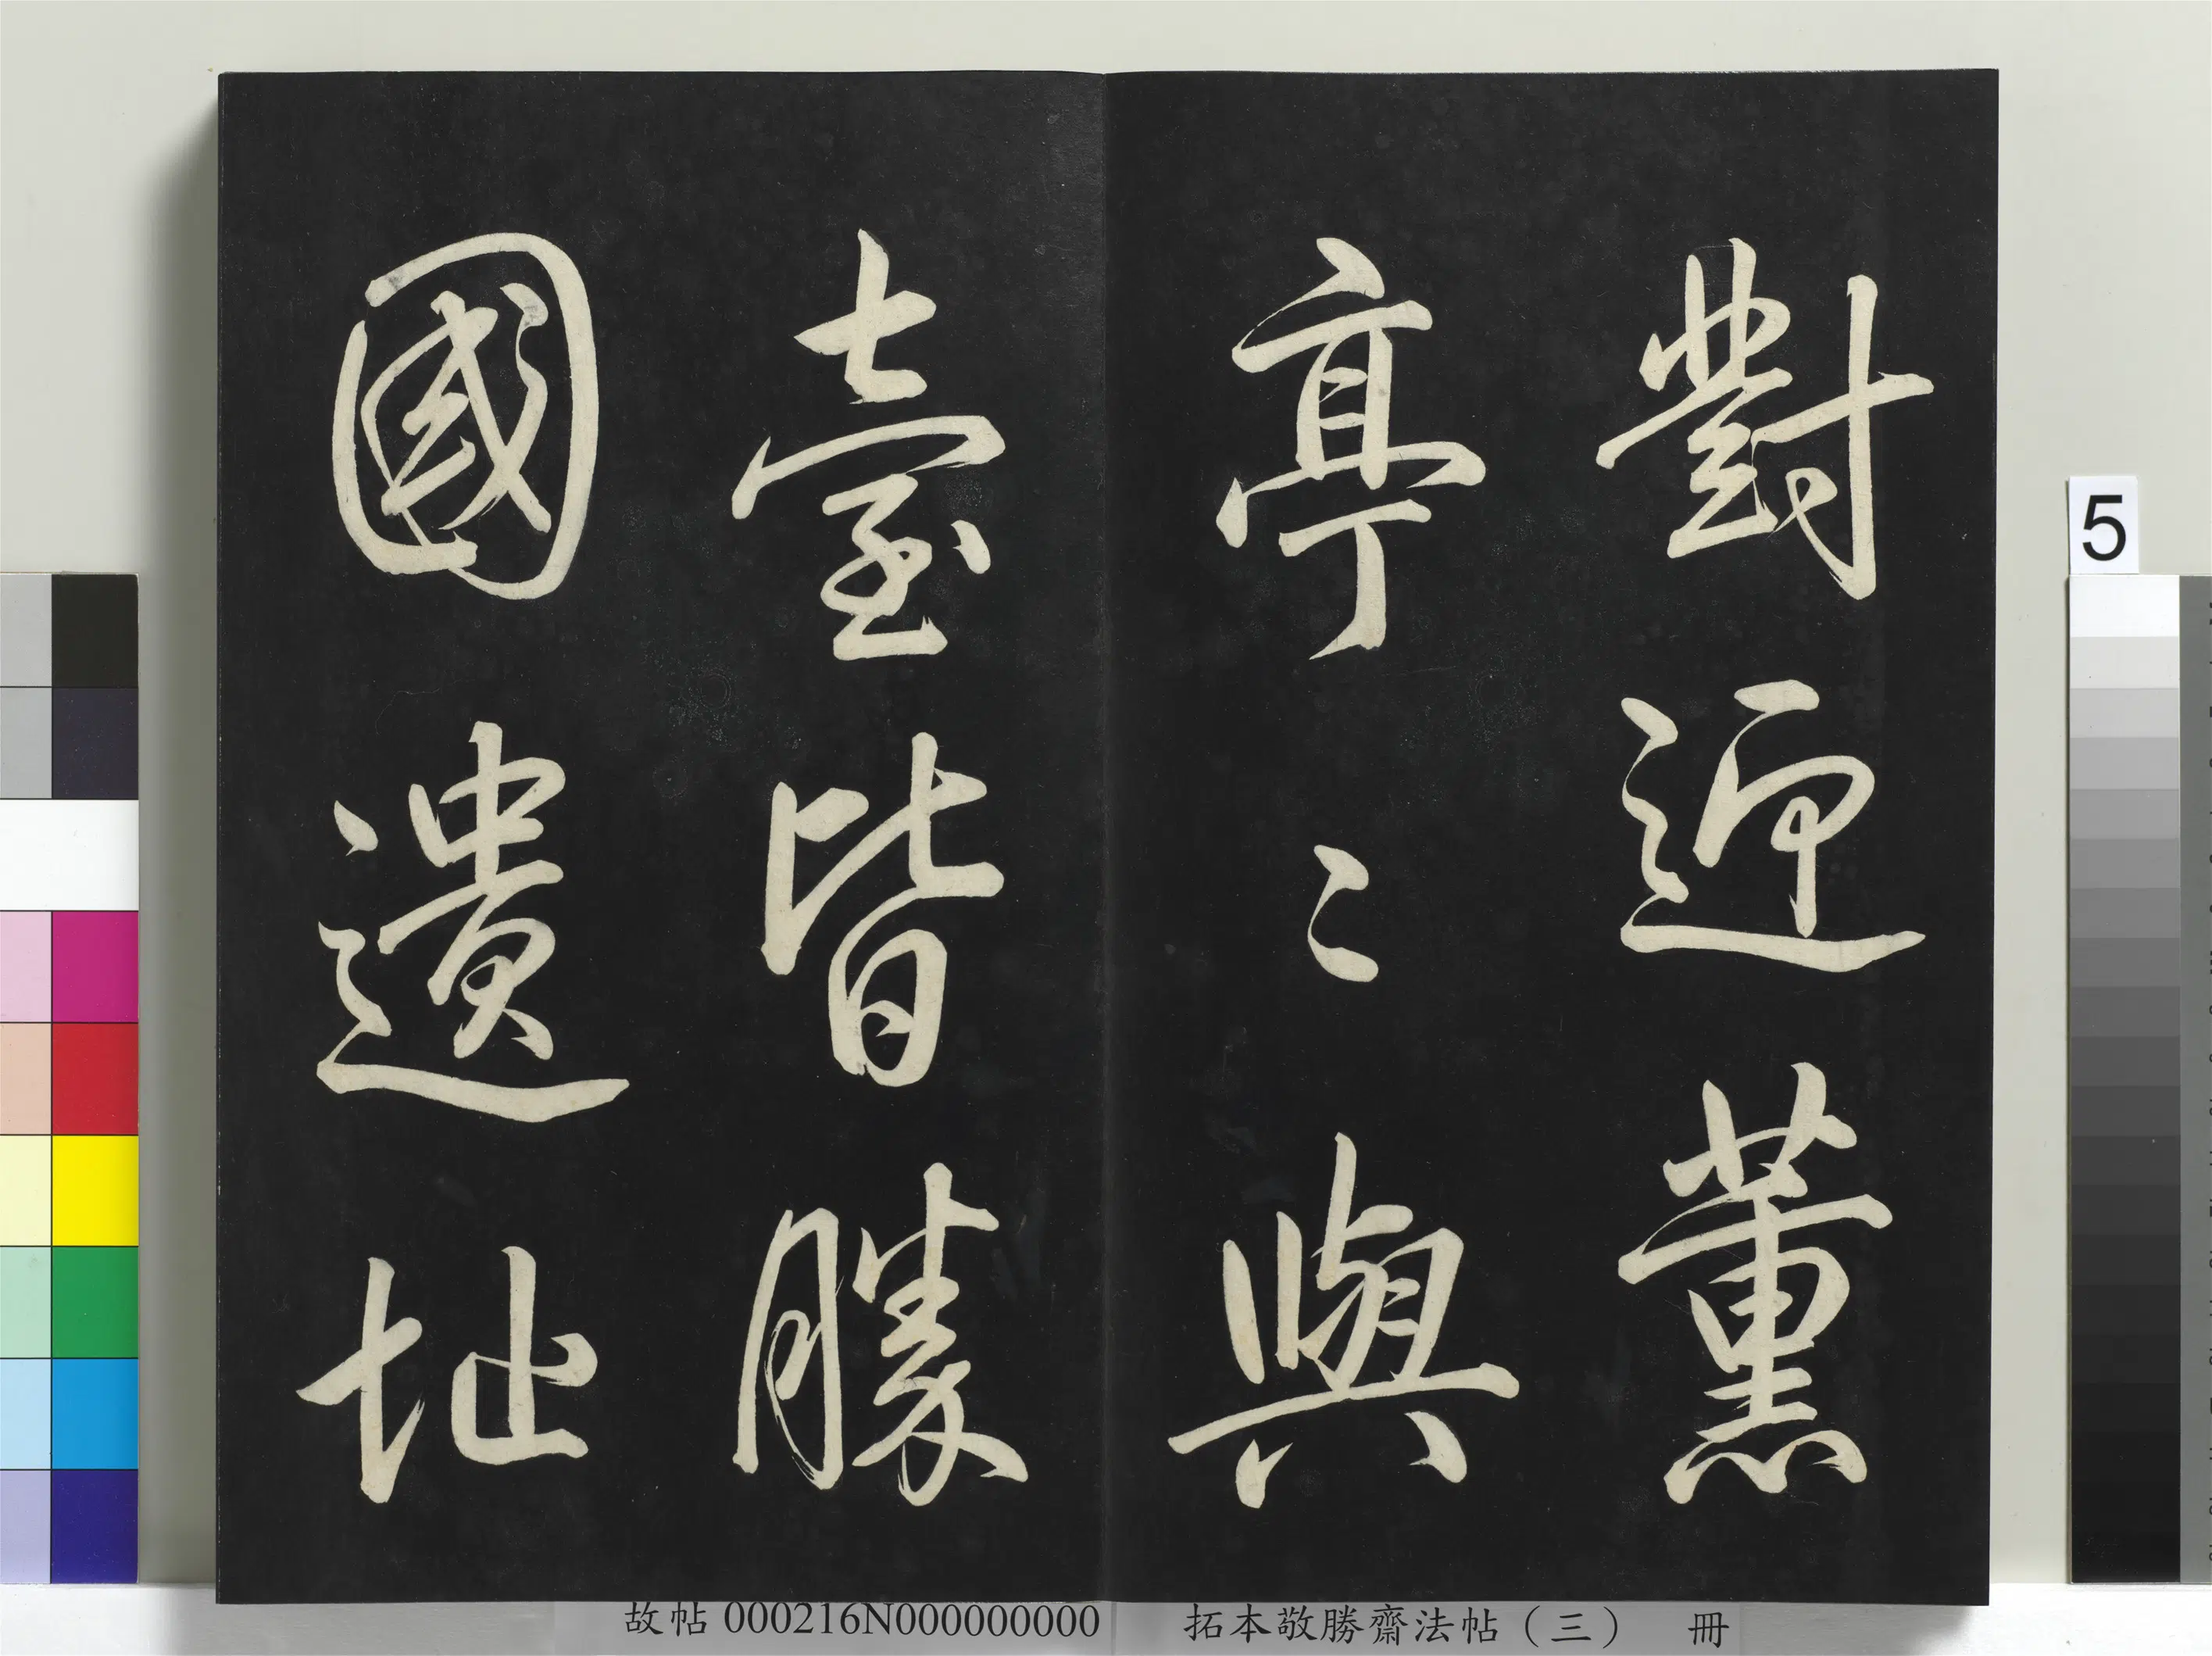 對近薰
亭〻與
臺皆勝
國遺址
5
故帖 000216N000000000 拓本敬勝齋法帖（三） 冊